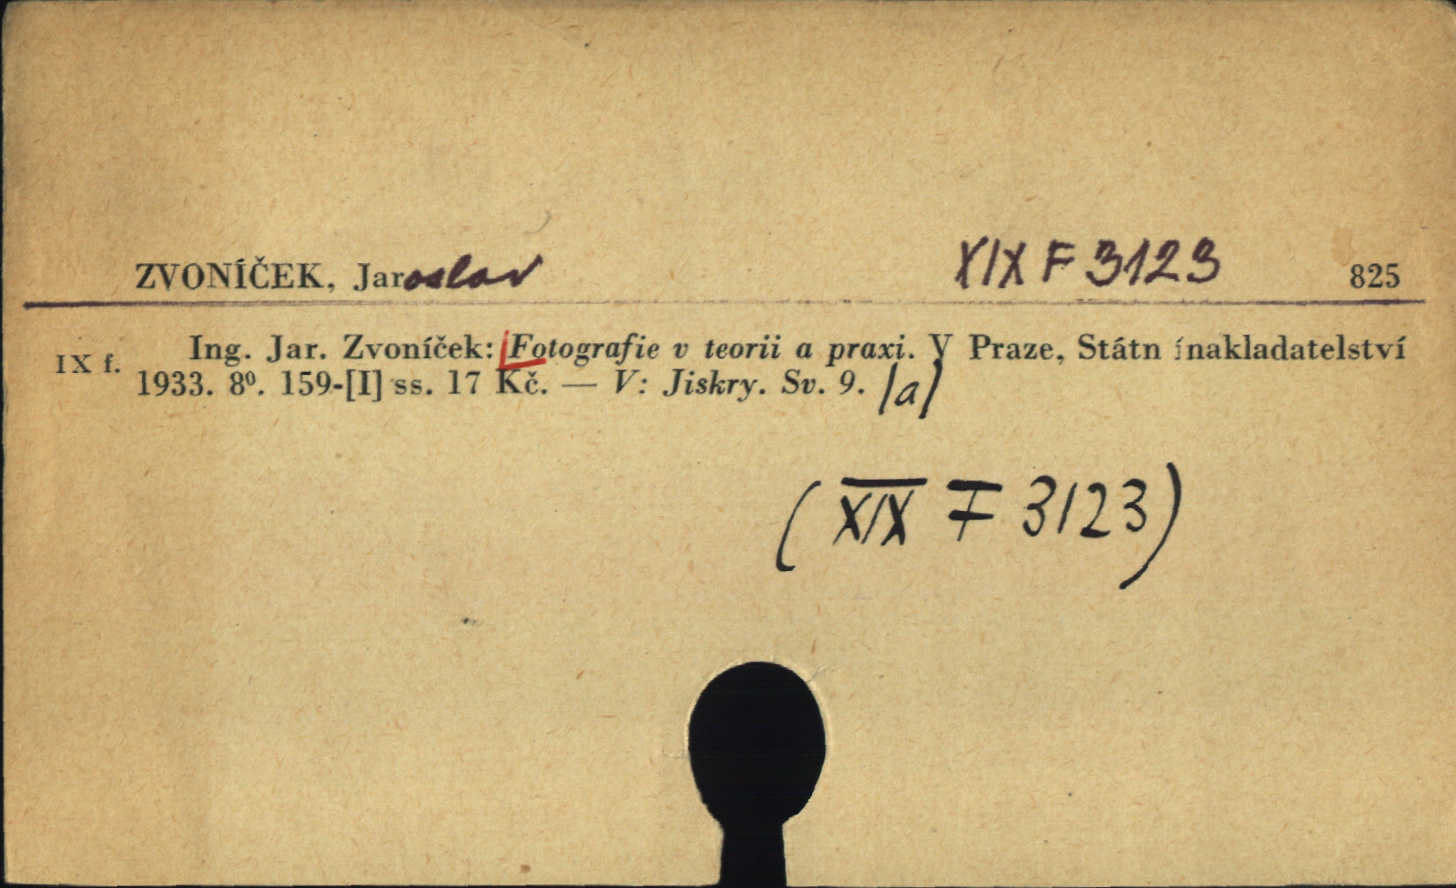 ZVONÍČEK, Jaroslav XIX F 3123 825
IX f. Ing. Jar. Zvoníček: Fotografie v teorii a praxi. V Praze, Státn ínakladatelství
1933. 8º. 159-[I] ss. 17 Kč. — V: Jiskry. Sv. 9. /a/
(XIX F 3123)